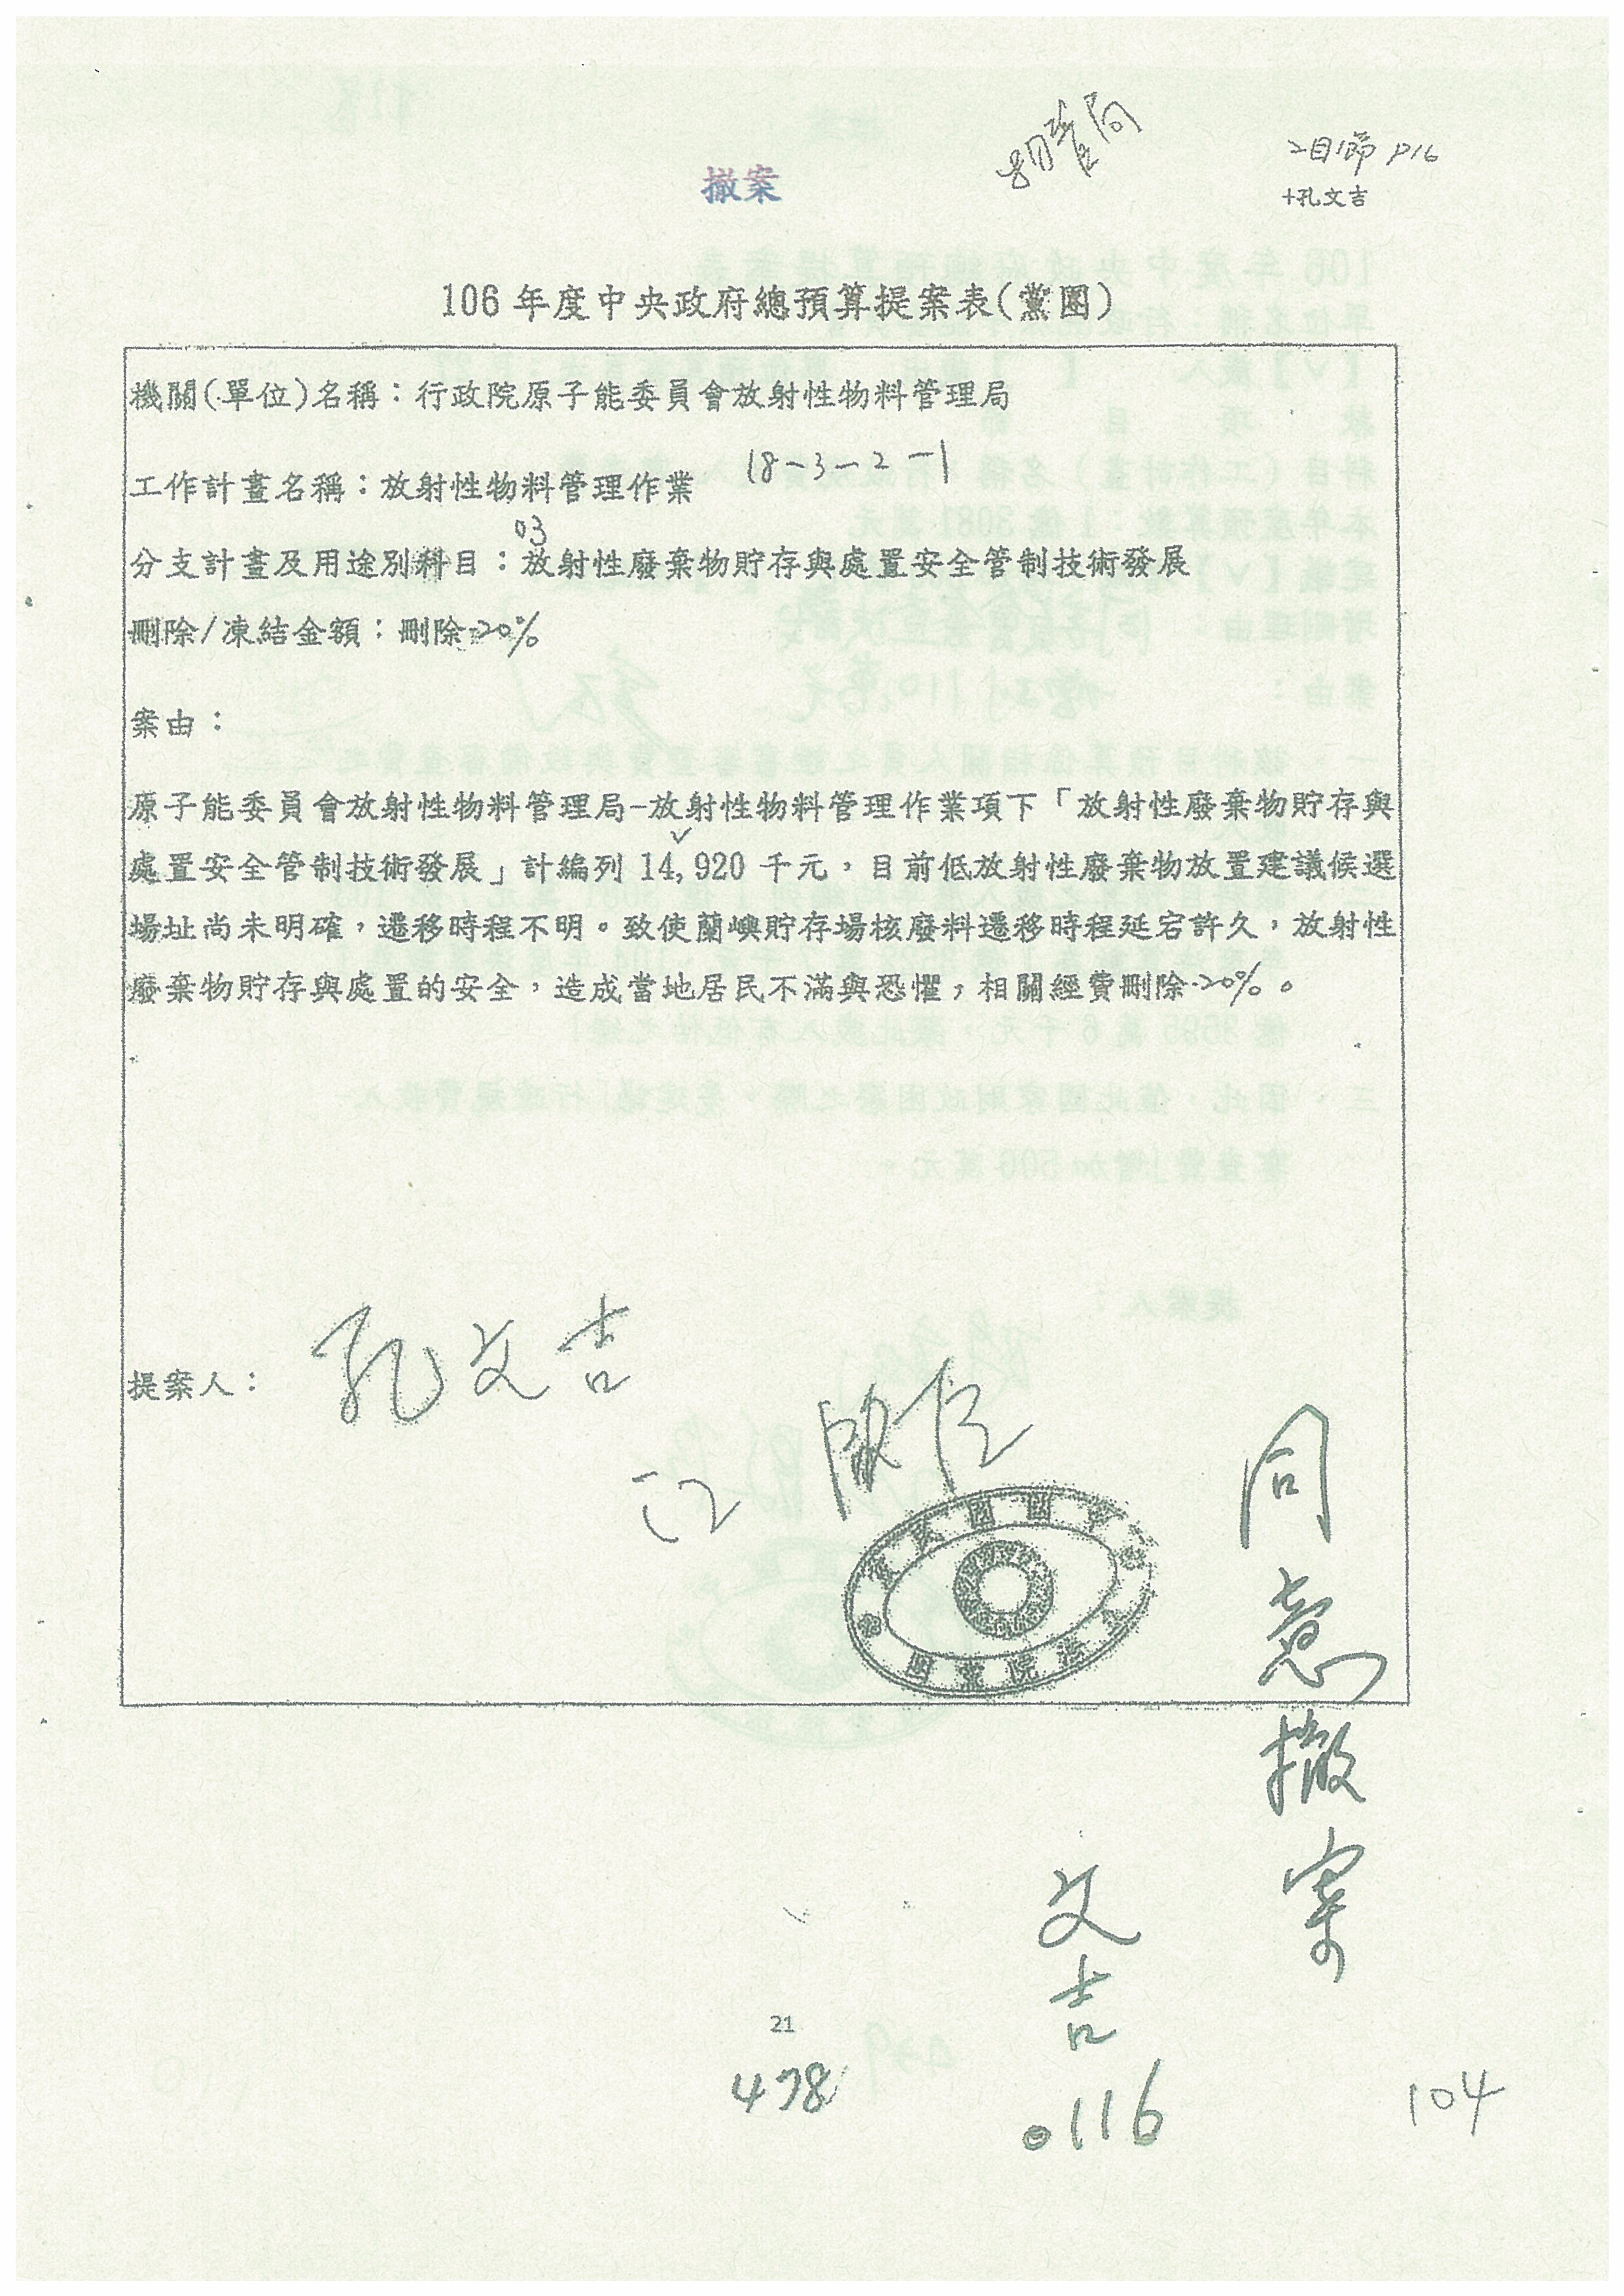 撤案
2目1節 P16
+孔文吉
106年度中央政府總預算提案表(黨團)
機關(單位)名稱：行政院原子能委員會放射性物料管理局
18-3-2-1
工作計畫名稱：放射性物料管理作業
03
分支計畫及用途別科目：放射性廢棄物貯存與處置安全管制技術發展
刪除/凍結金額：刪除20%
案由：
原子能委員會放射性物料管理局-放射性物料管理作業項下「放射性廢棄物貯存與
處置安全管制技術發展」計編列14,920千元，目前低放射性廢棄物放置建議候選
場址尚未明確，遷移時程不明。致使蘭嶼貯存場核廢料遷移時程延宕許久，放射性
廢棄物貯存與處置的安全，造成當地居民不滿與恐懼，相關經費刪除20%。
提案人：
孔文吉
江啟臣
同意撤案
文吉
0116
21
478
104